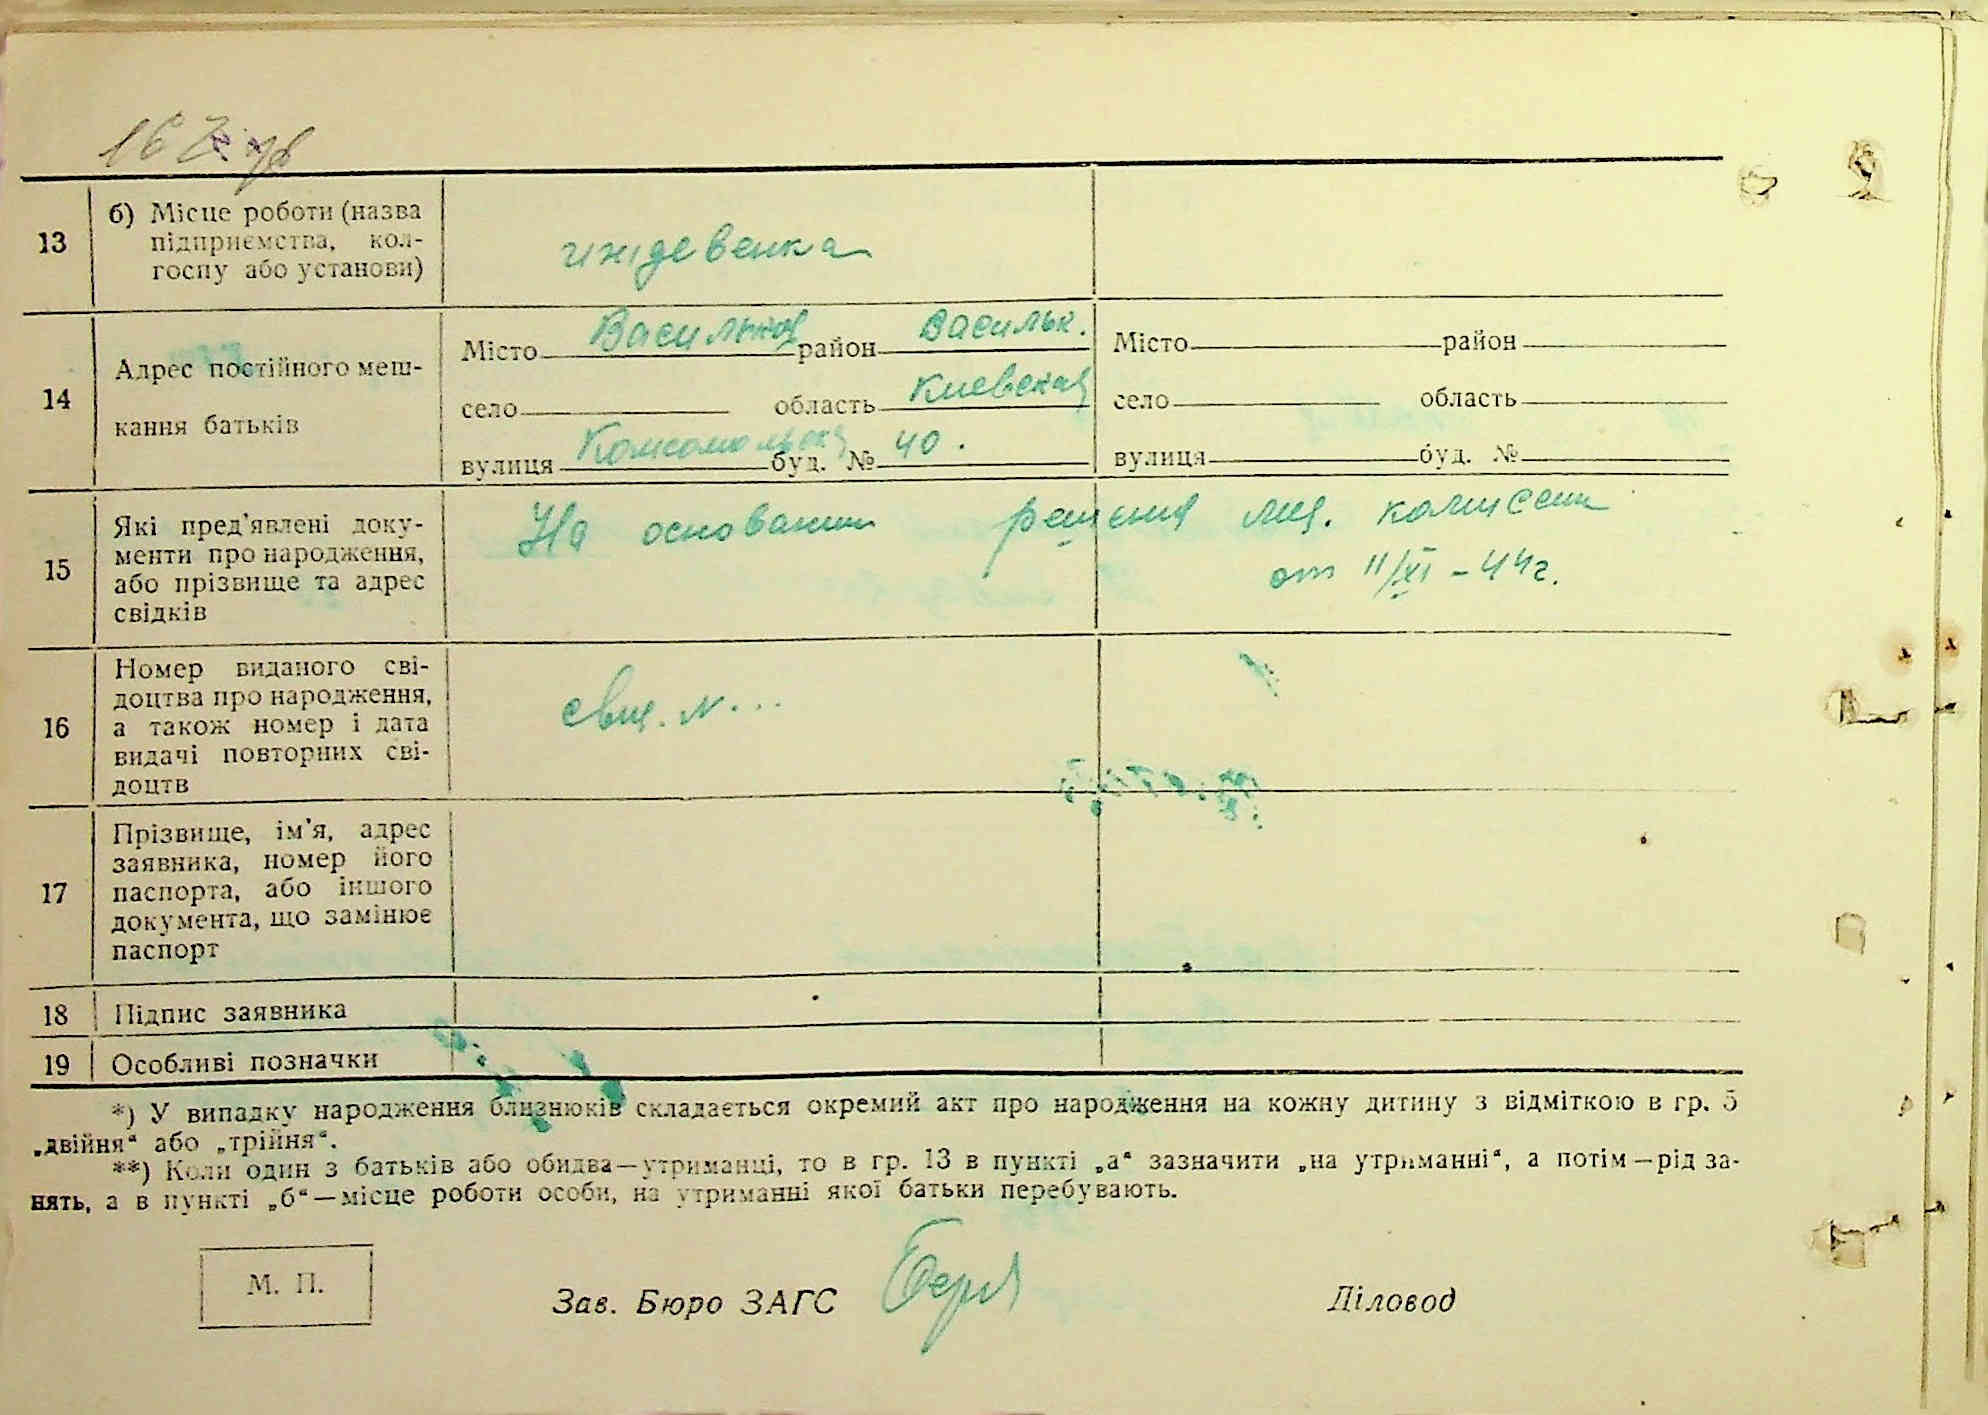 13
б) Місце роботи (назва
підприємства, кол-
госпу або установи)
иждевенка
14
Адрес постійного меш-
кання батьків
Місто Васильков район Васильк.
село область Киевская
вулиця Комсомольск буд. № 40.
Місто район
село область
вулиця буд. №
15
Які пред'явлені доку-
менти про народження,
або прізвище та адрес
свідків
На основании решения мед. комиссии
от 11/XI - 44 г.
16
Номер виданого сві-
доцтва про народження,
а також номер і дата
видачі повторних сві-
доцтв
17
Прізвище, ім'я, адрес
заявника, номер його
паспорта, або іншого
документа, що замінює
паспорт
18 Підпис заявника
19 Особливі позначки
*) У випадку народження близнюків складається окремий акт про народження на кожну дитину з відміткою в гр. 5
„двійня“ або „трійня“.
**) Коли один з батьків або обидва—утриманці, то в гр. 13 в пункті „а“ зазначити „на утриманні“, а потім—рід за-
нять, а в пункті „б“—місце роботи особи, на утриманні якої батьки перебувають.
М. П.
Зав. Бюро ЗАГС
Діловод